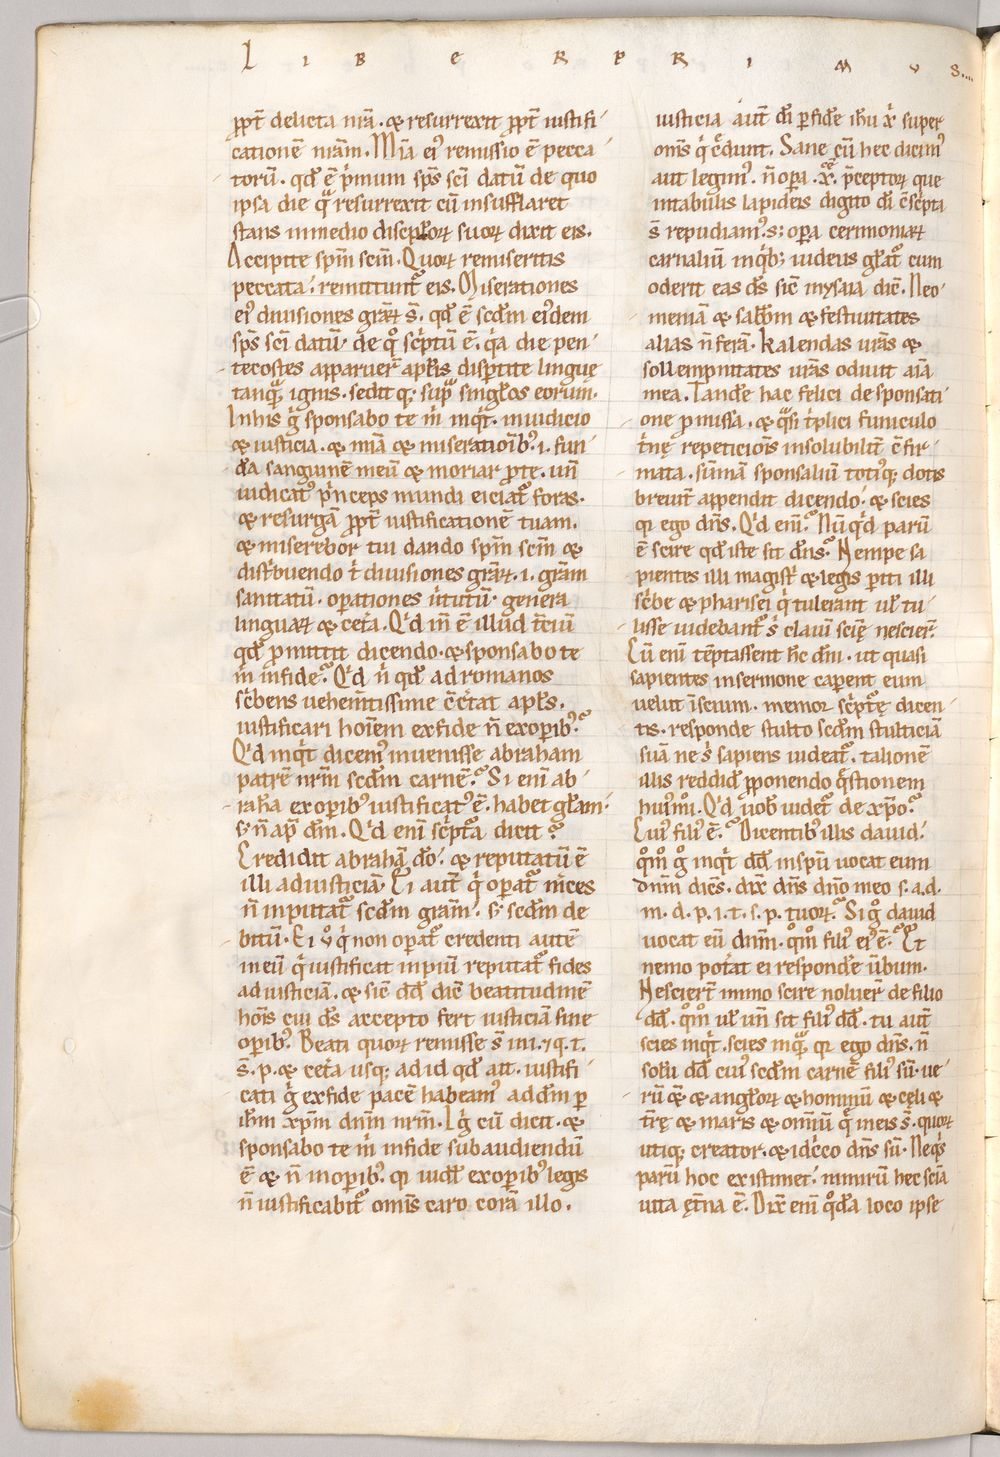 L I B E R P R I M V S....
ꝓpt̄ delicta nr̄a . ⁊ resurrexit ꝓpt̄ iustifi
cationē nr̄am . Mīa eiꝰ remissio ē pecca
torū . qd̄ ē p̍mum sp̄s sc̄i datū de quo
ipsa die qͣ resurrexit cū insufflaret
stans inmedio discipl̄oꝝ suoꝝ dixit eis .
Accipite sp̄m sc̄m . Quoꝝ remiseritis
peccata ; remittunt̄ eis . Miserationes
eiꝰ diuisiones gr̄aꝝ s̄ . qd̄ ē scd̄m eiꝰdem
sp̄s sc̄i datū . de qͦ sc̍ptū ē . qͥa die pen
tecostes apparuer̄ apl̄is dispertite linguę
tanqͣ ignis . sedit qꝫ supͣ singl̄os eorum .
Inhis g̍ sponsabo te m̍ inqͥt . iniudicio
⁊ iusticia . ⁊ mīa ⁊ miserationibꝰ . i . fun
dā sanguinē meū ⁊ moriar ꝓte . un̄
iudicatꝰ p̍nceps mundi eiciat̄ foras .
⁊ resurgā ꝓpt̄ iustificationē tuam .
⁊ miserebor tui dando sp̄m sc̄m ⁊
dist̍buendo t̍ diuisiones gr̄aꝝ . i . gr̄am
sanitatū . oꝑationes u̍tutū . genera
linguaꝝ ⁊ cet̄a . Qͥd m̄ ē illud t̄ciū
qd̄ ꝓmittit dicendo . ⁊ sponsabo te
m̍ infide ? Qͥd n̄ qd̄ ad romanos
sc̍bens uehem̄tissime c̄c̄tat apl̄s .
iustificari hoīem exfide n̄ exoꝑibꝰ ?
Qͥd inqͥt dicemꝰ inuenisse abraham
patrē nr̄m scd̄m carnē ? Si eni̅ ab
rahā exoꝑibꝰ iustificatꝰ ē . habet gl̄am .
sꝫ n̄ ap̄ dm̄ . Qͥd eni̅ sc̍ptā dicit ?
Credidit abrahā dō ; ⁊ reputatū ē
illi adiusticiā . Ei aut̄ qͥ oꝑat̄ m̄ces
n̄ inputat̄ scd̄m gr̄am . sꝫ scd̄m de
bitū . Ei ūͦ qͥ non oꝑat̄ credenti autē
ineū qͥ iustificat inpiū reputat̄ fides
adiusticiā . ⁊ sic̄ dd̄ dic̄ beatitudinē
hoīs cui ds̄ accepto fert iusticiā sine
oꝑibꝰ . Beati quoꝝ remisse s̄ ini . ⁊ q . t .
s̄ . p . ⁊ cet̄a usqꝫ ad id qd̄ ait . iustifi
cati g̍ exfide pacē habeamꝰ addm̄ ꝑ
ih̄m xp̄m dnm̄ nr̄m . Ig̍ cū dicit . ⁊
sponsabo te m̍ infide subaudiendū
ē ⁊ n̄ inoꝑibꝰ . qi uid̄ꝫ exoꝑibꝰ legis
n̄ iustificabit̄ omīs caro corā illo .
iusticia aut̄ dī ꝑ fidē ih̄u xp̄ī super
om̄s qͥ c̄dunt . Sane cū hec dicimꝰ
aut legimꝰ . n̄ oꝑa . x̄ . p̄ceptoꝝ que
intabulis lapideis digito dī c̄sc̍pta
s̄ repudiamꝰ . sꝫ oꝑa cerimoniaꝝ
carnaliū inqͥbꝫ iudeus gl̄at̄ cum
oderit eas ds̄ sic̄ inysaia dic̄ . Neo
meniā ⁊ sabb̄m ⁊ festiuitates
alias n̄ ferā . kalendas ur̄as ⁊
sollempnitates ur̄as odiuit aīa
mea . Tandē hac felici desponsati
one ꝓmissa . ⁊ qͣsi t̍plici funiculo
t̍nę repeticiōis insolubilit̄ c̄fir
mata . sūmā sponsaliū totiqꝫ dotis
breuit̄ appendit dicendo ; ⁊ scies
qi ego dn̄s . Qͥd eni̅ ? Nūqͥd parū
ē scire qd̄ iste sit dn̄s ? Nempe sa
pientes illi magist̍ ⁊ legis ꝑiti illi
sc̍be ⁊ pharisei qͥ tulerant ul̄ tu
lisse uidebant̄ s̍ clauū scię nescier̄ .
Cū eni̅ tēptassent hc̄ dm̄ . ut quasi
sapientes insermone caꝑent eum
uelut īscium . memor sc̍ptę dicen
tis . responde stulto scd̄m stulticiā
suā ne s̍ sapiens uideat̄ . talionē
illis reddid̄ ꝓponendo qͥstionem
huiꝰmī . Qͥd uob̄ uidet̄ de xp̄o ?
Cuiꝰ filiꝰ ē ? Dicentibꝰ illis dauid ;
qͦmͦ gͦ inqͥt dd̄ inspū uocat eum
dnm̄ dicēs . dix̄ dn̄s dn̄o meo s . a . d .
m . d . p . i . t . s . p . tuoꝝ ? Si gͦ dauid
uocat eū dnm̄ . qͦmͦ filiꝰ eiꝰ ē ? Et
nemo pot̄at ei respondē ūbum .
Nescier̄t immo scire noluer̄ de filio
dd̄ . qͦmͦ ul̄ un̄ sit filiꝰ dd̄ . tu aut̄
scies inqͥt . scies inqͣ qi ego dn̄s . n̄
solū dd̄ cuiꝰ scd̄m carnē filiꝰ sū . ue
rū ⁊ ⁊ angl̄oꝝ ⁊ hominū ⁊ cęli ⁊
t̄rę ⁊ maris ⁊ omīū qͥ ineis s̄ . quoꝝ
utiqꝫ creator . ⁊ idc̍co dn̄s sū . Neqͥs
parū hoc existimet ; nimirū hec scīa
uita ęt̄na ē . Dix̄ eni̅ qͦdā loco ipse